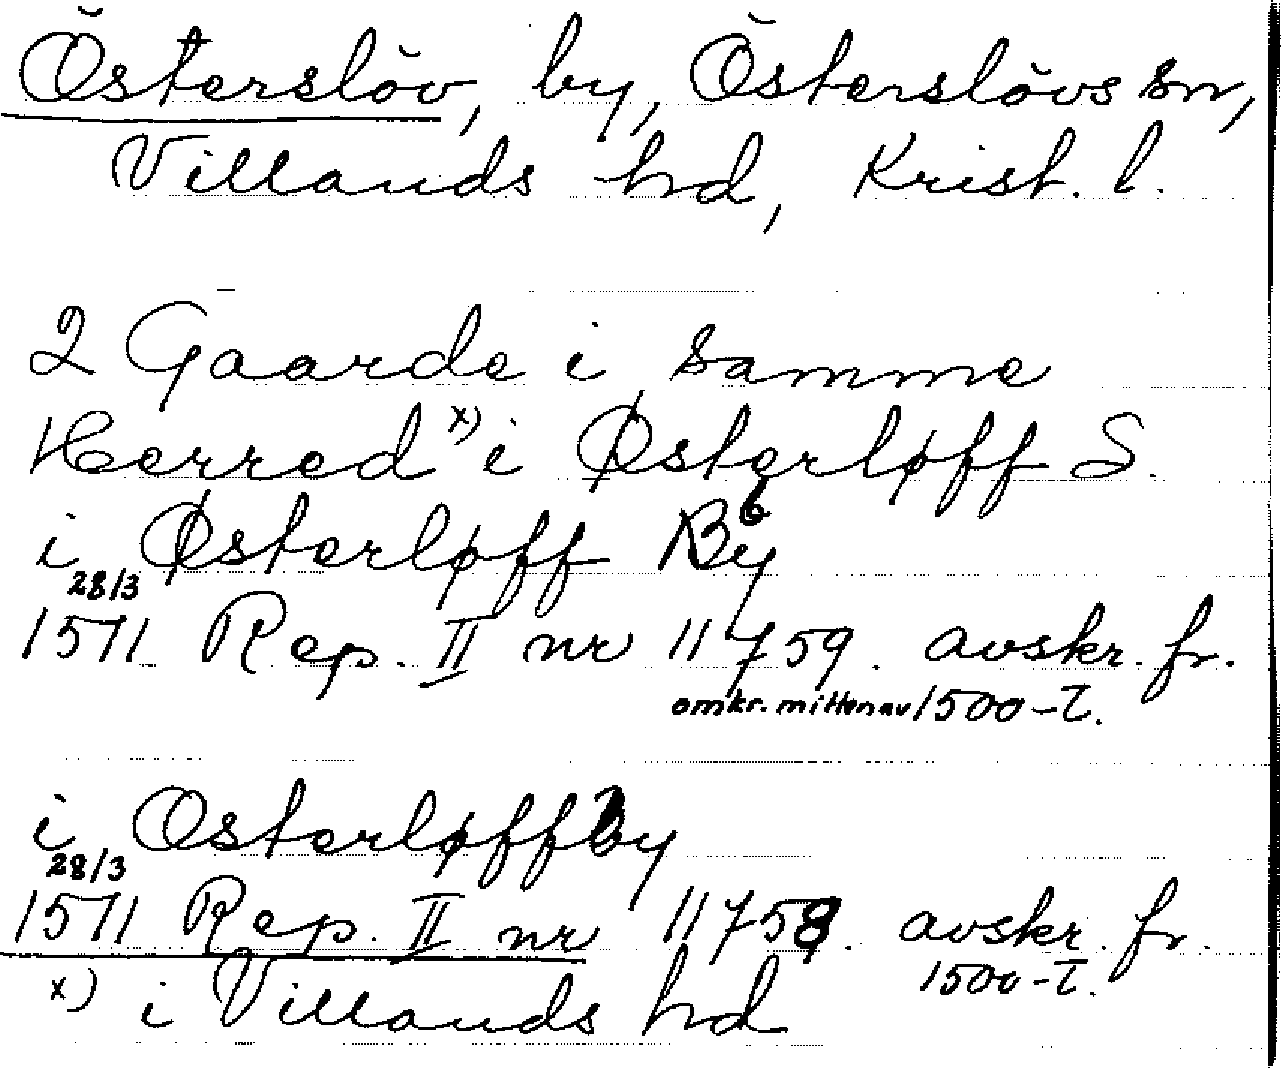 Österslöv, by, Österslövs sn,
Villands hd, Krist. l.
2 Gaarde i samme
Herred x) i Østerløff S.
i Østerløff By
28/3
1571 Rep. II nr 11759. avskr. fr.
omkr. mitten av 1500-t.
i Østerløffby
28/3
1571 Rep. II nr 11758. avskr. fr.
1500-t.
x) i Villands hd